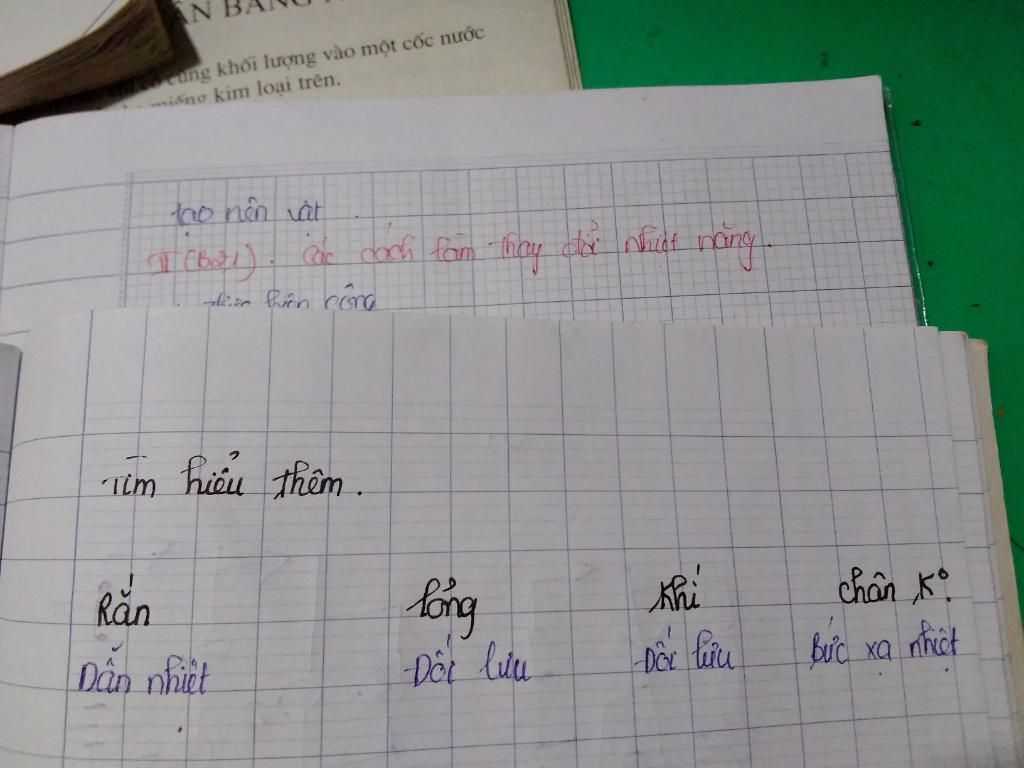 ÂN BẰNG
cùng khối lượng vào một cốc nước
miếng kim loại trên.
tạo nên vật
II (Bài). Các cách làm thay đổi nhiệt năng.
thực hiện công
Tìm hiểu thêm.
Rắn lỏng Khí chân K°.
Dẫn nhiệt Đối lưu Đối lưu Bức xạ nhiệt